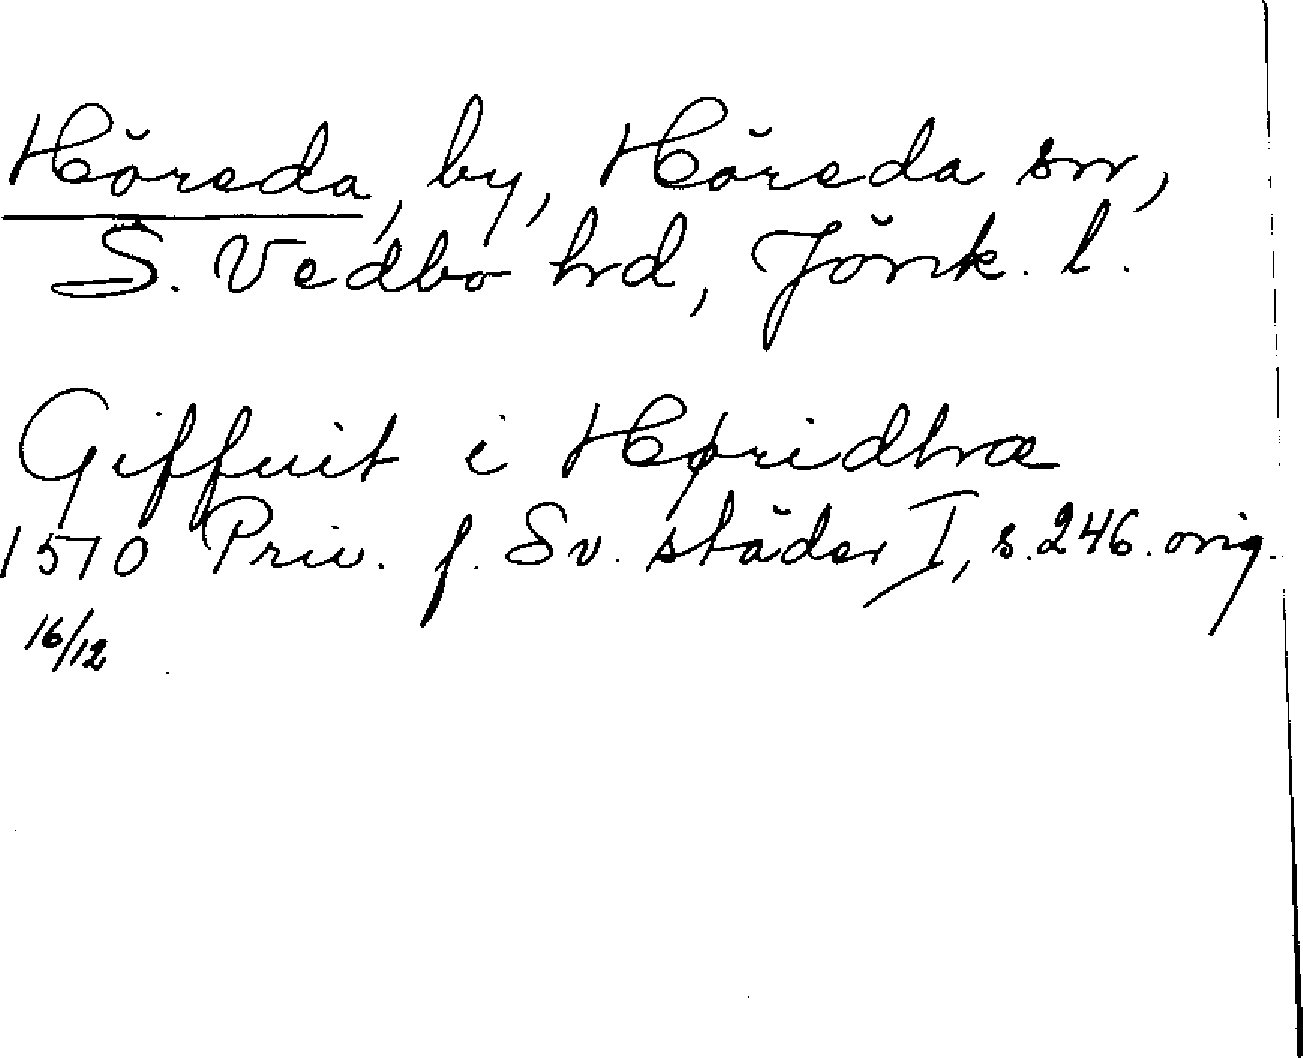 Höreda, by, Höreda sn,
S. Vedbo hrd, Jönk. l.
Giffuit i Høridhræ
1510 Priv. f. Sv. städer I, s. 246. orig.
16/12